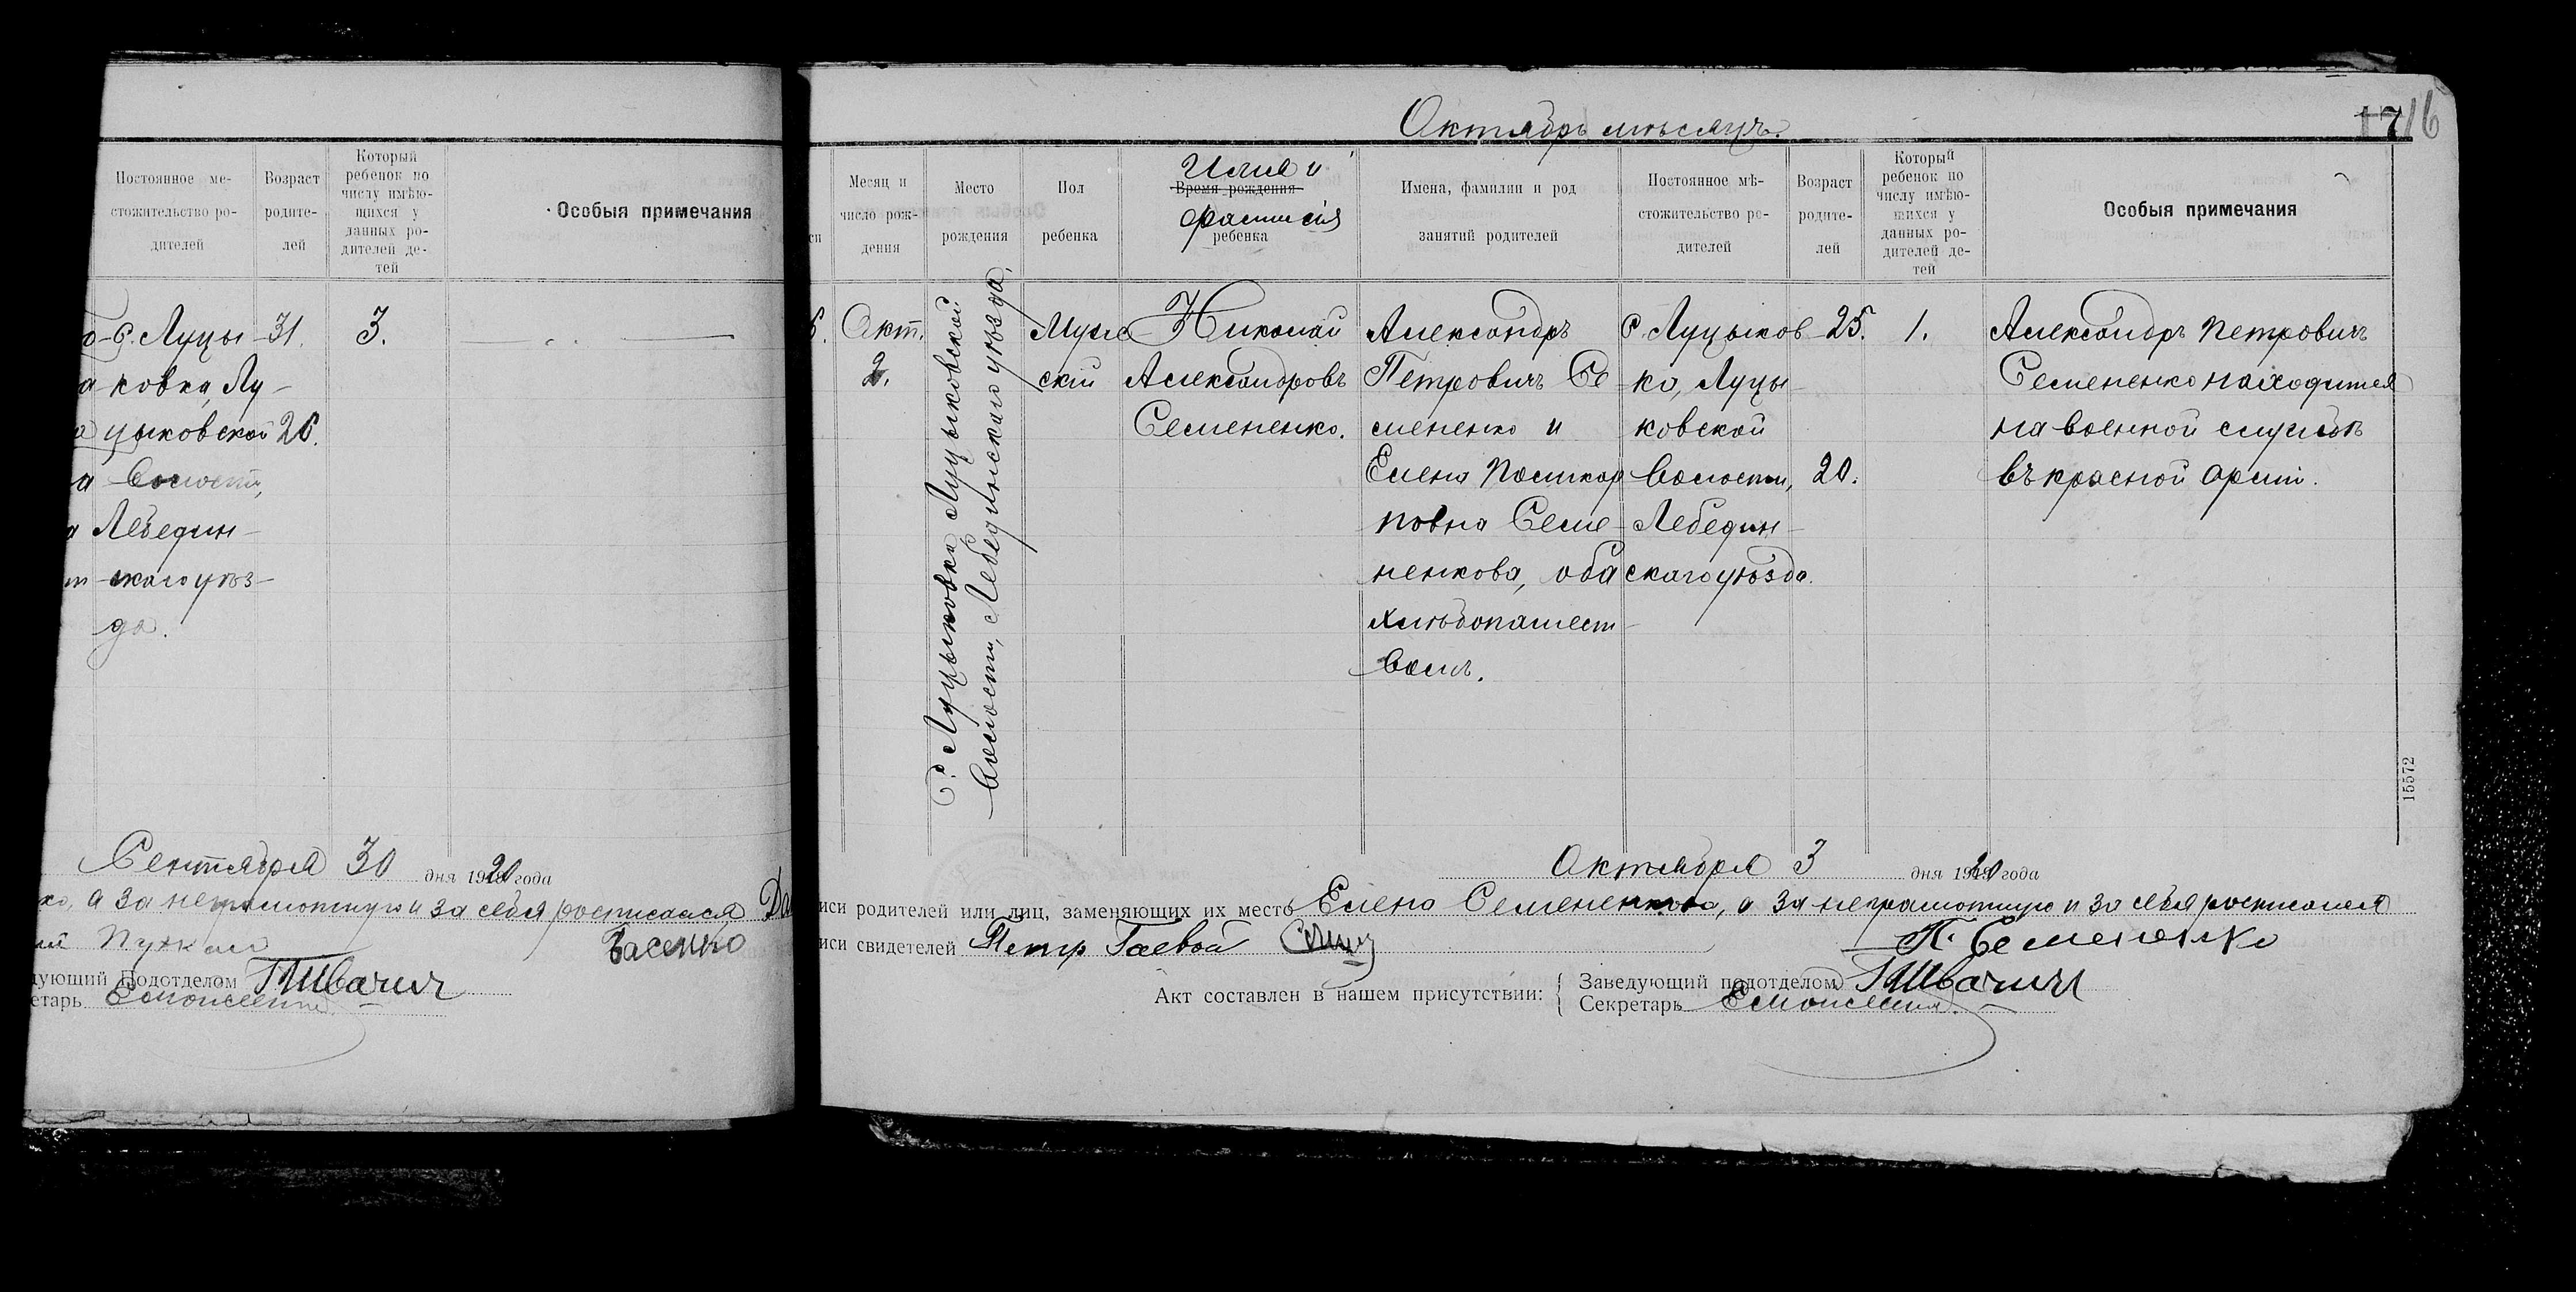 Постоянное ме-
стожительство ро-
дителей
Возраст
родите-
лей
Который
ребенок по
числу имѣю-
щихся у
данных ро-
дителей де-
тей
Особыя примечания
С. Луцы-
ковка, Лу-
цыковской
Волости,
Лебедин-
скаго уѣз-
да.
31.
26.
3.
Сентября 30 дня 1920 года
а за неграмотную и за себя росписался
Басенко
дующий Подотделом ГШвачич
етарь
Октябрь мѣсяцъ.
17 16
Месяц и
число рож-
дения
Место
рождения
Пол
ребенка
Имя и
Время рождения
фамилія
ребенка
Имена, фамилии и род
занятий родителей
Постоянное мѣ-
стожительство ро-
дителей
Возраст
родите-
лей
Который
ребенок по
числу имѣю-
щихся у
данных ро-
дителей де-
тей
Особыя примечания
Окт.
2.
С. Луцыковка Луцыковской
Волости, Лебединскаго уѣзда.
Муж
ской
Николай
Александровъ
Семененко.
Александръ
Петровичъ Се-
мененко и
Елена Поликар
повна Семе-
ненкова, оба
хлѣбопашест-
вомъ.
С. Луцыков-
ка, Луцы-
ковской
Волости,
Лебедин-
скаго уѣзда.
25.
20.
1.
Александръ Петровичъ
Семененко находится
на военной службѣ
въ красной арміи.
15572
Октября 3 дня 1920 года
иси родителей или лиц, заменяющих их место Елена Семененкова, а за неграмотную и за себя росписался
П. Семененко
иси свидетелей Петр Гаевой
Акт составлен в нашем присутствии:
Заведующий подотделом ГШвачич
Секретарь